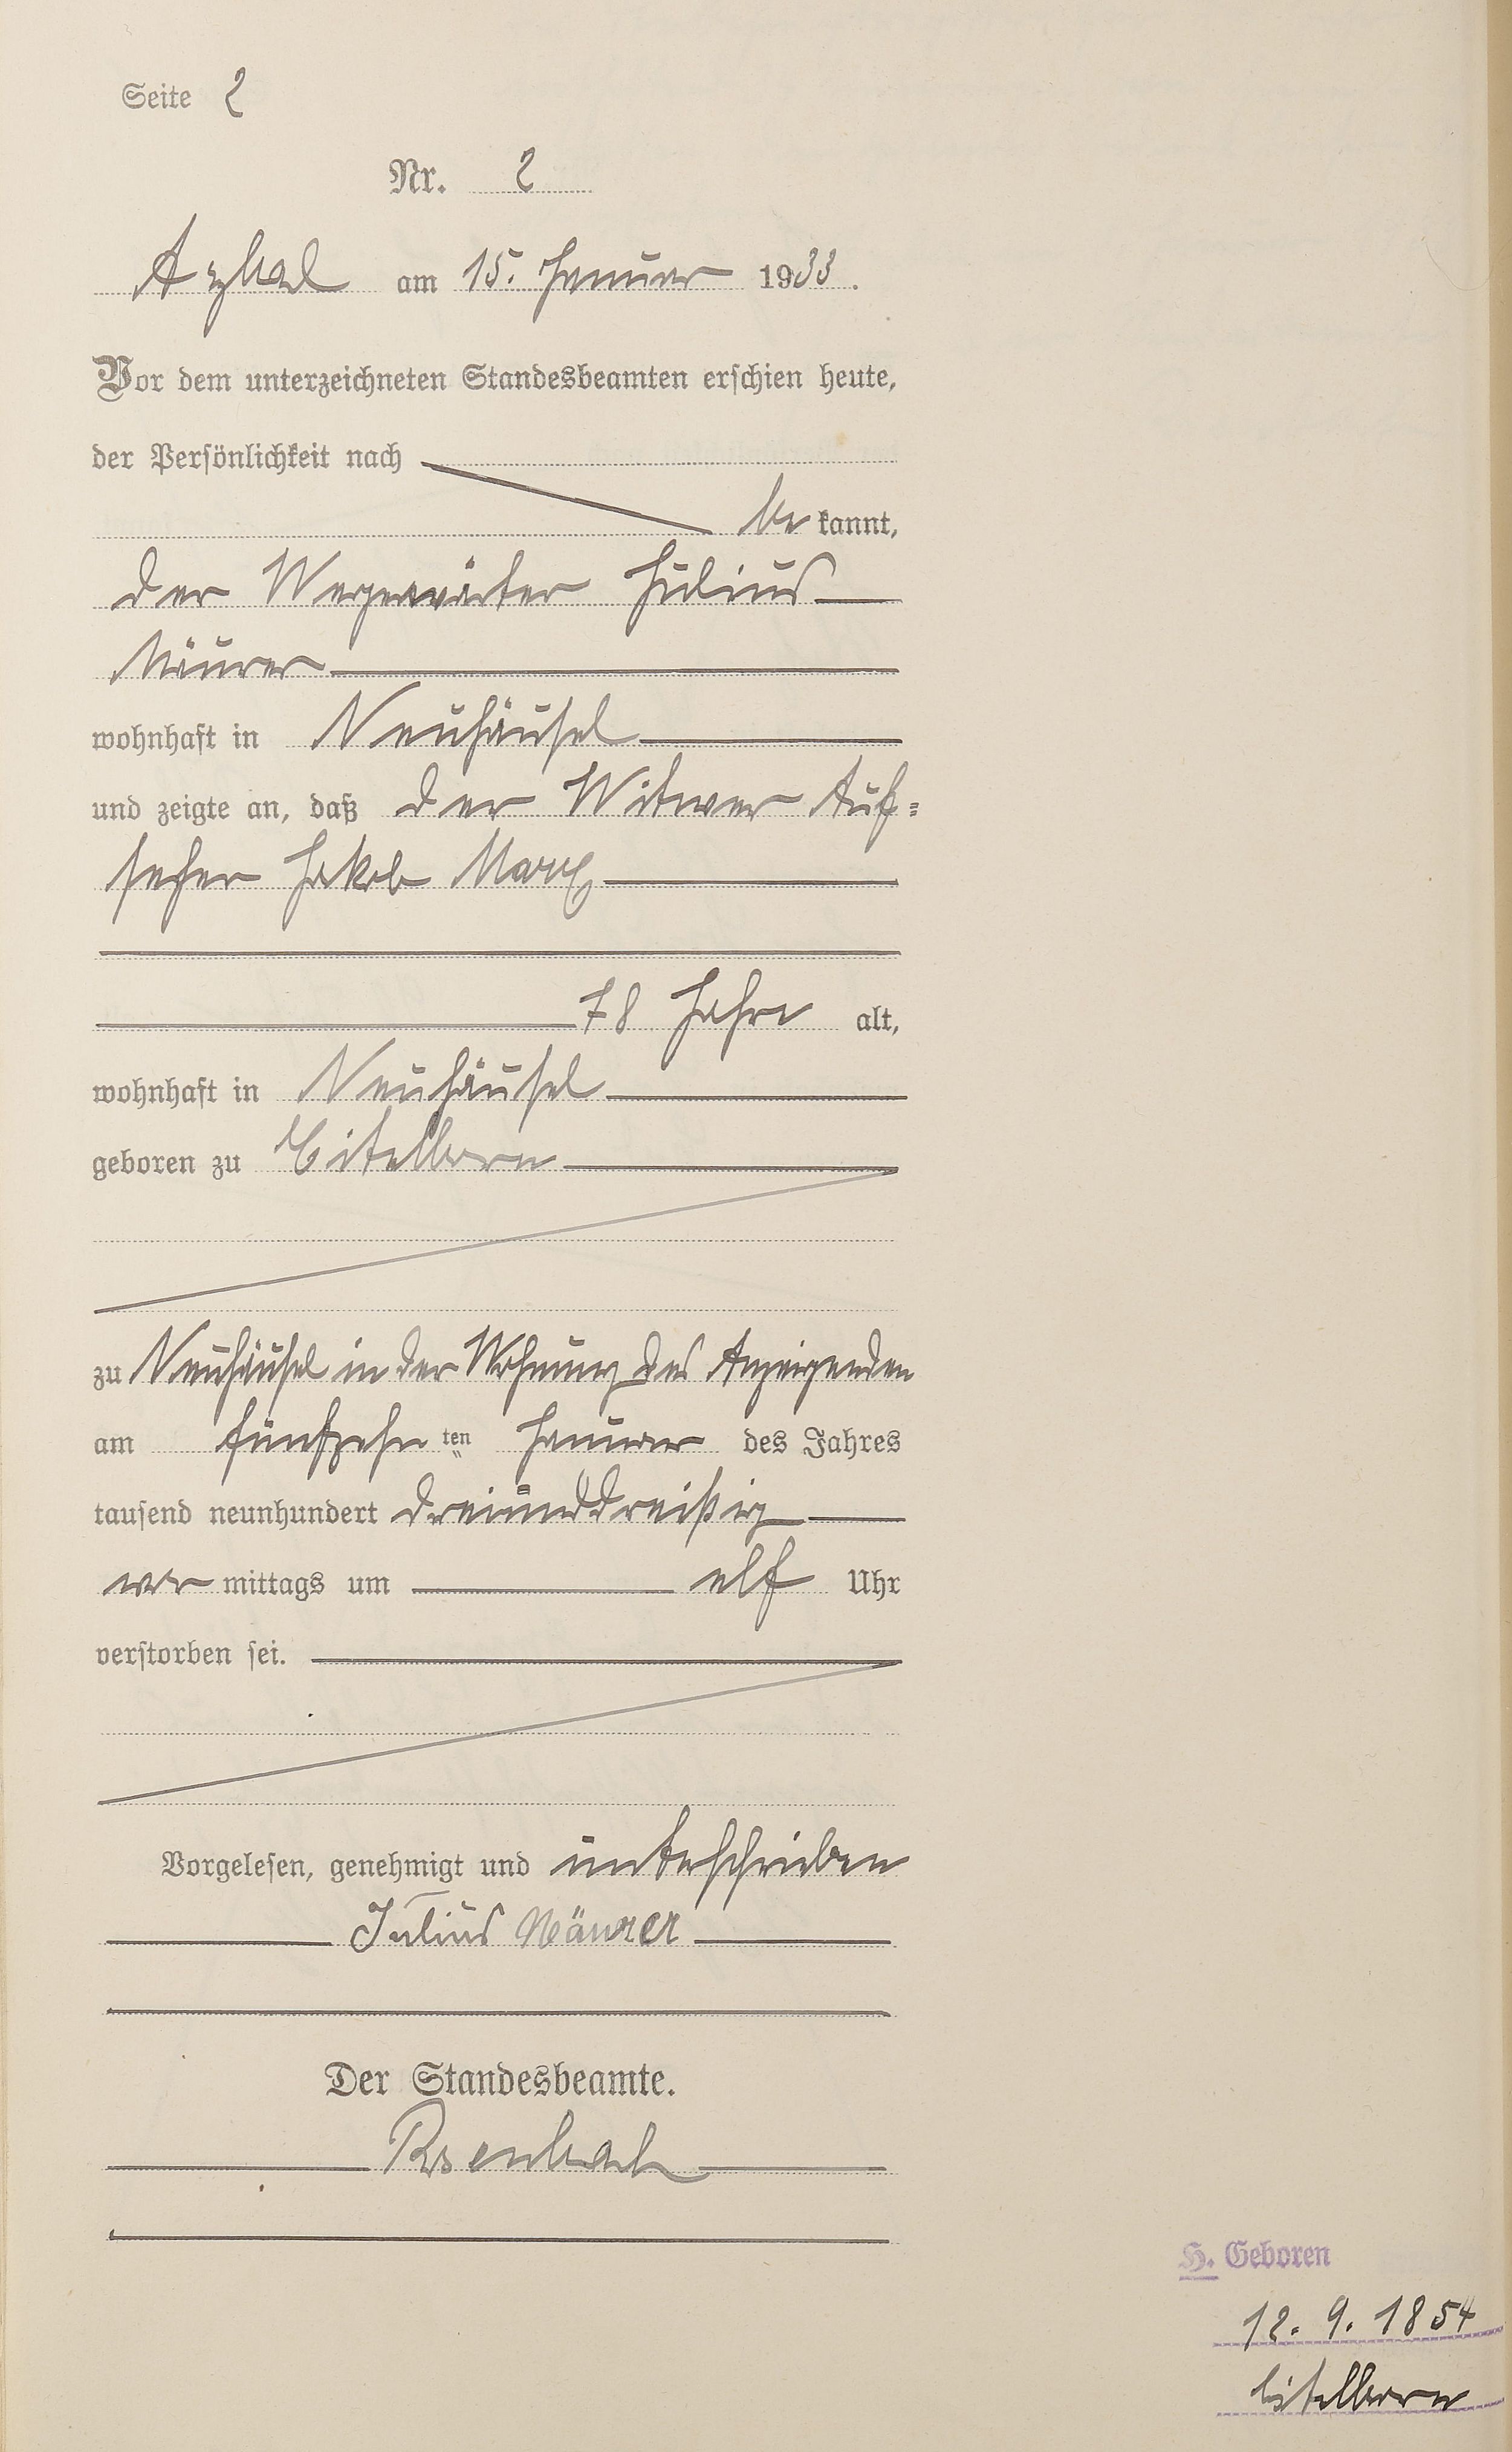 Seite 2
Nr. 2
Arzbach am 15. Januar 1933.
Vor dem unterzeichneten Standesbeamten erschien heute,
der Persönlichkeit nach
be kannt,
der Wegewärter Julius
Mäurer
wohnhaft in Neuhäusel
und zeigte an, daß der Witwer Auf=
seher Jakob Marx
78 Jahre alt,
wohnhaft in Neuhäusel
geboren zu Eitelborn
zu Neuhäusel in der Wohnung des Anzeigenden
am fünfzehn ten Januar des Jahres
tausend neunhundert dreiunddreißig
vor mittags um elf Uhr
verstorben sei.
Vorgelesen, genehmigt und unterschrieben
Julius Mäurer
Der Standesbeamte.
H. Geboren
12. 9. 1854
Eitelborn